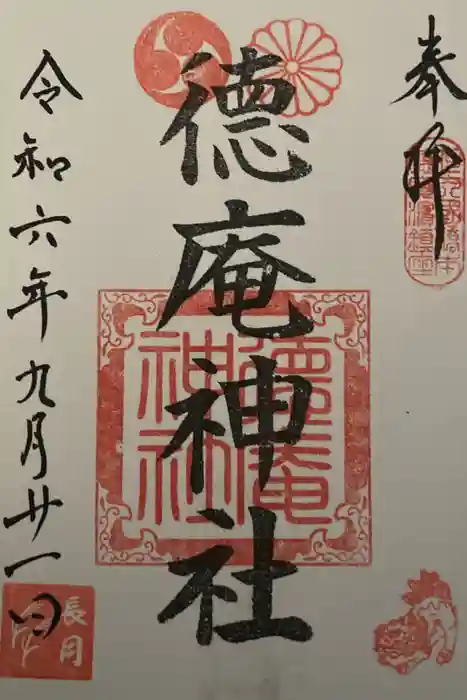 奉拝
徳庵神社
令和六年九月廿一日
徳庵神社
長月